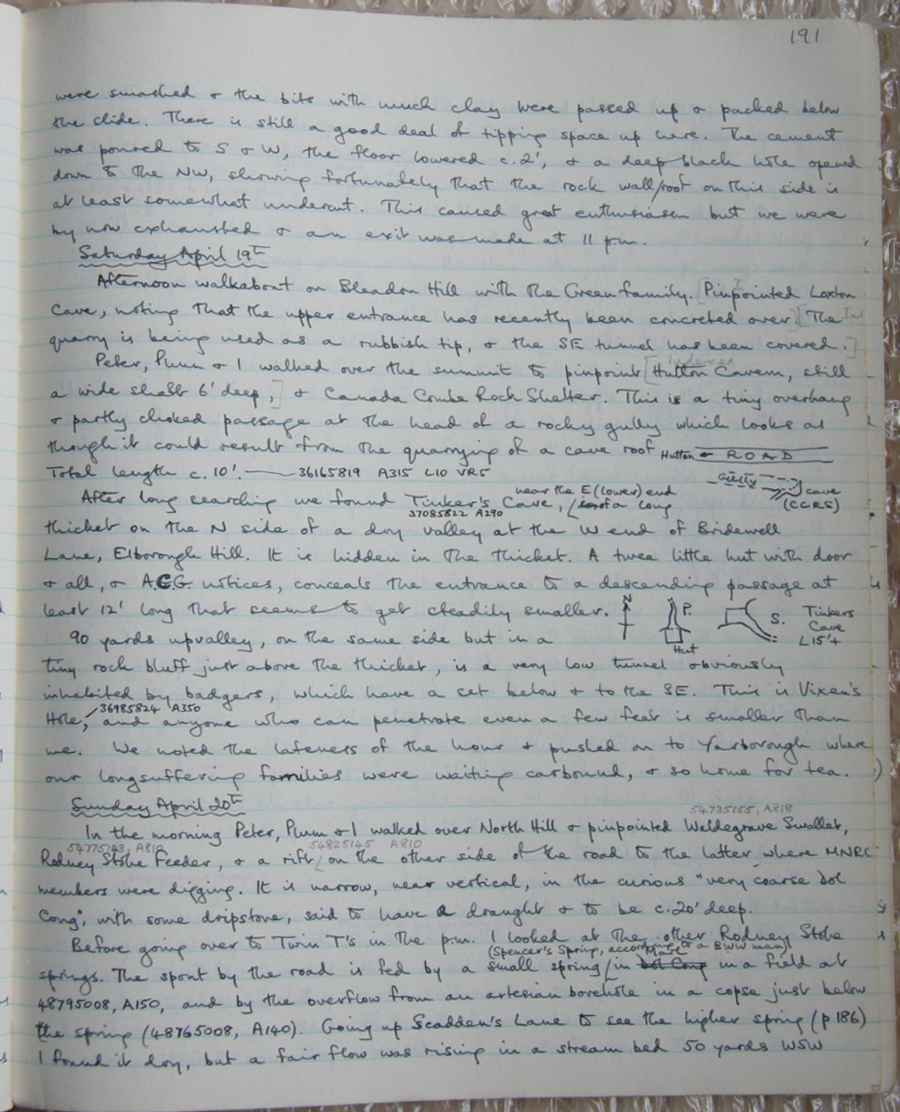 191
were smashed & the bits with much clay were passed up & packed below
the slide. There is still a good deal of tipping space up here. The cement
was poured to S & W, the floor lowered c.2', & a deep black hole opened
down to the NW, showing fortunately that the rock wall/roof on this side is
at least somewhat undercut. This caused great enthusiasm but we were
by now exhausted & an exit was made at 11 pm.
Saturday April 19th
Afternoon walkabout on Bleadon Hill with the Green family. [Pinpointed Loxton
Cave, noting that the upper entrance has recently been concreted over.] [The
quarry is being used as a rubbish tip, & the SE tunnel has been covered.]
Peter, Plum & I walked over the summit to pinpoint [Hutton Cavern, still
a wide shaft 6' deep,] & Canada Combe Rock Shelter. This is a tiny overhang
& partly choked passage at the head of a rocky gully which looks as
though it could result from the quarrying of a cave roof. Hutton ← ROAD
Total length c.10'. — 36165819 A315 L10 VR5 gully cave
(CCRS)
After long searching we found Tinker's Cave, near the E (lower) end of a long
37085822 A290
thicket on the N side of a dry valley at the W end of Bridewell
Lane, Elborough Hill. It is hidden in the thicket. A twee little hut with door
& all, & A.C.G. notices, conceals the entrance to a descending passage at
least 12' long that seems to get steadily smaller. N P. Hut S. Tinkers
Cave
L15'+
90 yards upvalley, on the same side but in a
tiny rock bluff just above the thicket, is a very low tunnel obviously
inhabited by badgers, which have a set below & to the SE. This is Vixen's
36985824 A350
Hole, and anyone who can penetrate even a few feet is smaller than
me. We noted the lateness of the hour & pushed on to Yarborough where
our longsuffering families were waiting carbound, & so home for tea.
Sunday April 20th
54735155, A818
In the morning Peter, Plum & I walked over North Hill & pinpointed Waldegrave Swallet,
54775143, A810 54825145 A810
Rodney Stoke Feeder, & a rift on the other side of the road to the latter where MNRC
members were digging. It is narrow, near vertical, in the curious "very coarse dol
Cong", with some dripstone, said to have a draught & to be c.20' deep.
Before going over to Twin T's in the p.m. I looked at the other Rodney Stoke
(Spencer's Spring, according to a BWW man)
springs. The spout by the road is fed by a small spring in dol Cong Marl in a field at
48795008, A150, and by the overflow from an artesian borehole in a copse just below
the spring (48765008, A140). Going up Scadden's Lane to see the higher spring (p 186)
I found it dry, but a fair flow was rising in a stream bed 50 yards WSW